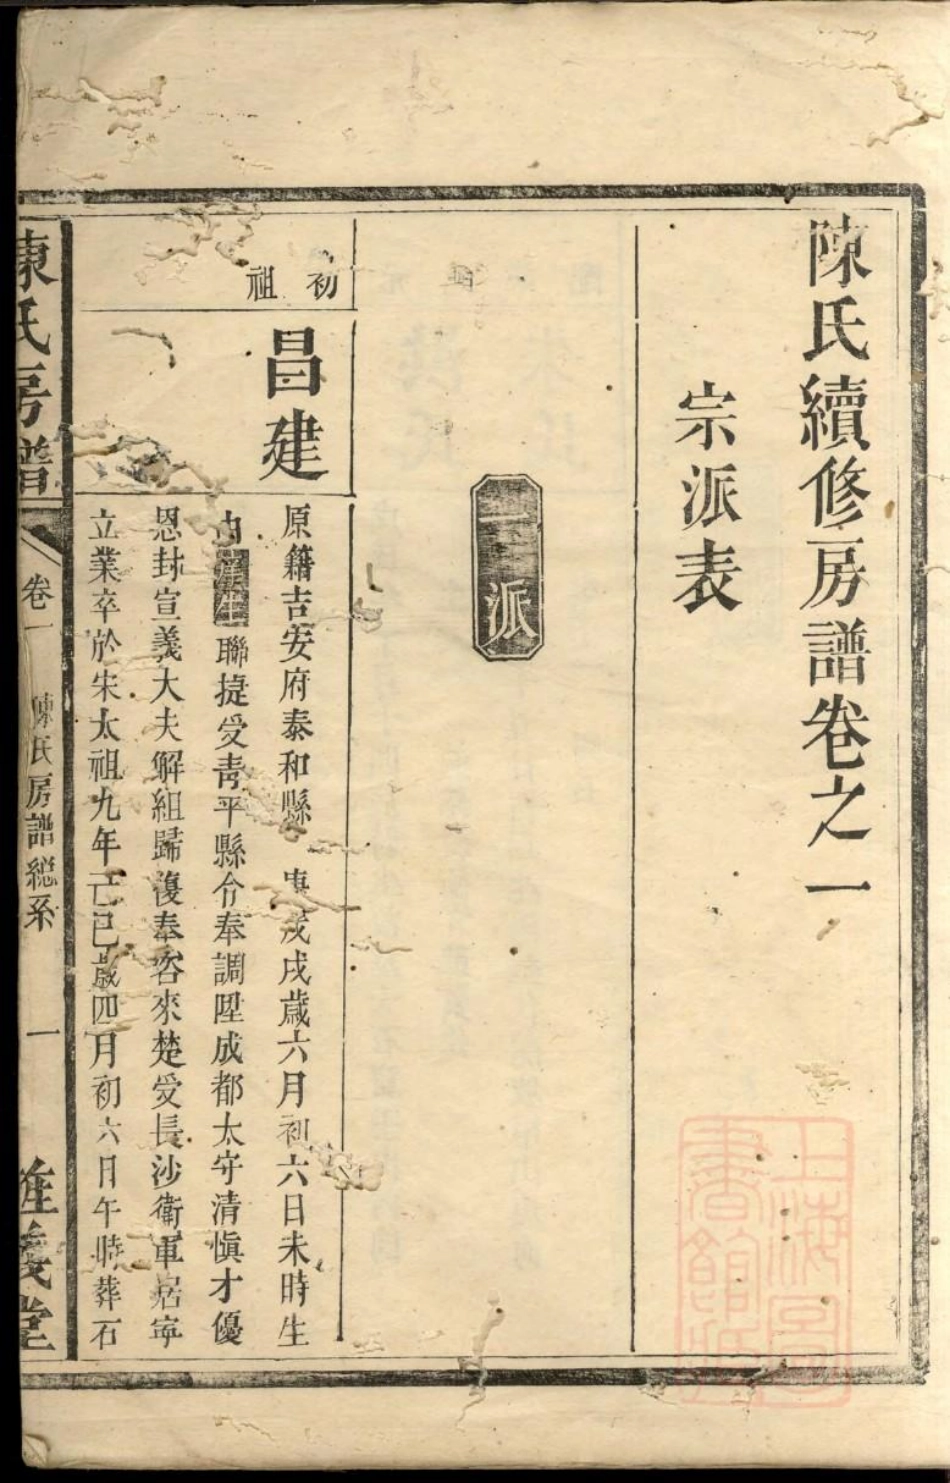 陳氏續修房譜卷之一
宗派表
一派
初祖
昌建
原籍吉安府泰和縣 唐戊戌歲六月初六日未時生
由庠生聯捷受青平縣令奉調陞成都太守清慎才優
恩封宣義大夫解組歸復奉咨來楚受長沙衛軍居寧
立業卒於宋太祖九年己巳歲四月初六日午時葬石
陳氏房譜
卷一
陳氏房譜總系
一
義堂
上海圖書館藏